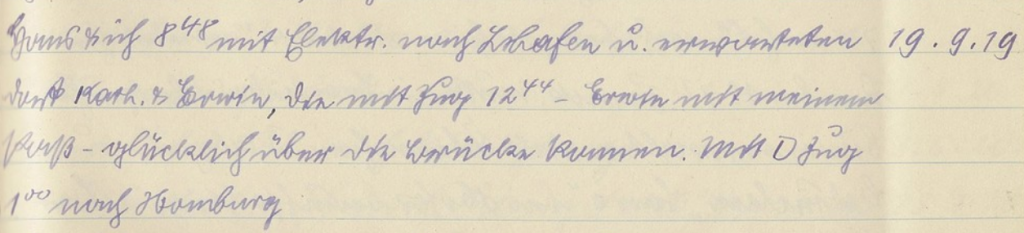 Hans & ich 8⁴⁸ mit Elektr. nach Lhafen u. erwarteten 19.9.19
dort Kath. & Erwin, die mit Zug 12⁴⁴ - Erwin mit meinem
Paß - glücklich über die Brücke kommen. Mit D Zug
1⁰⁰ nach Homburg